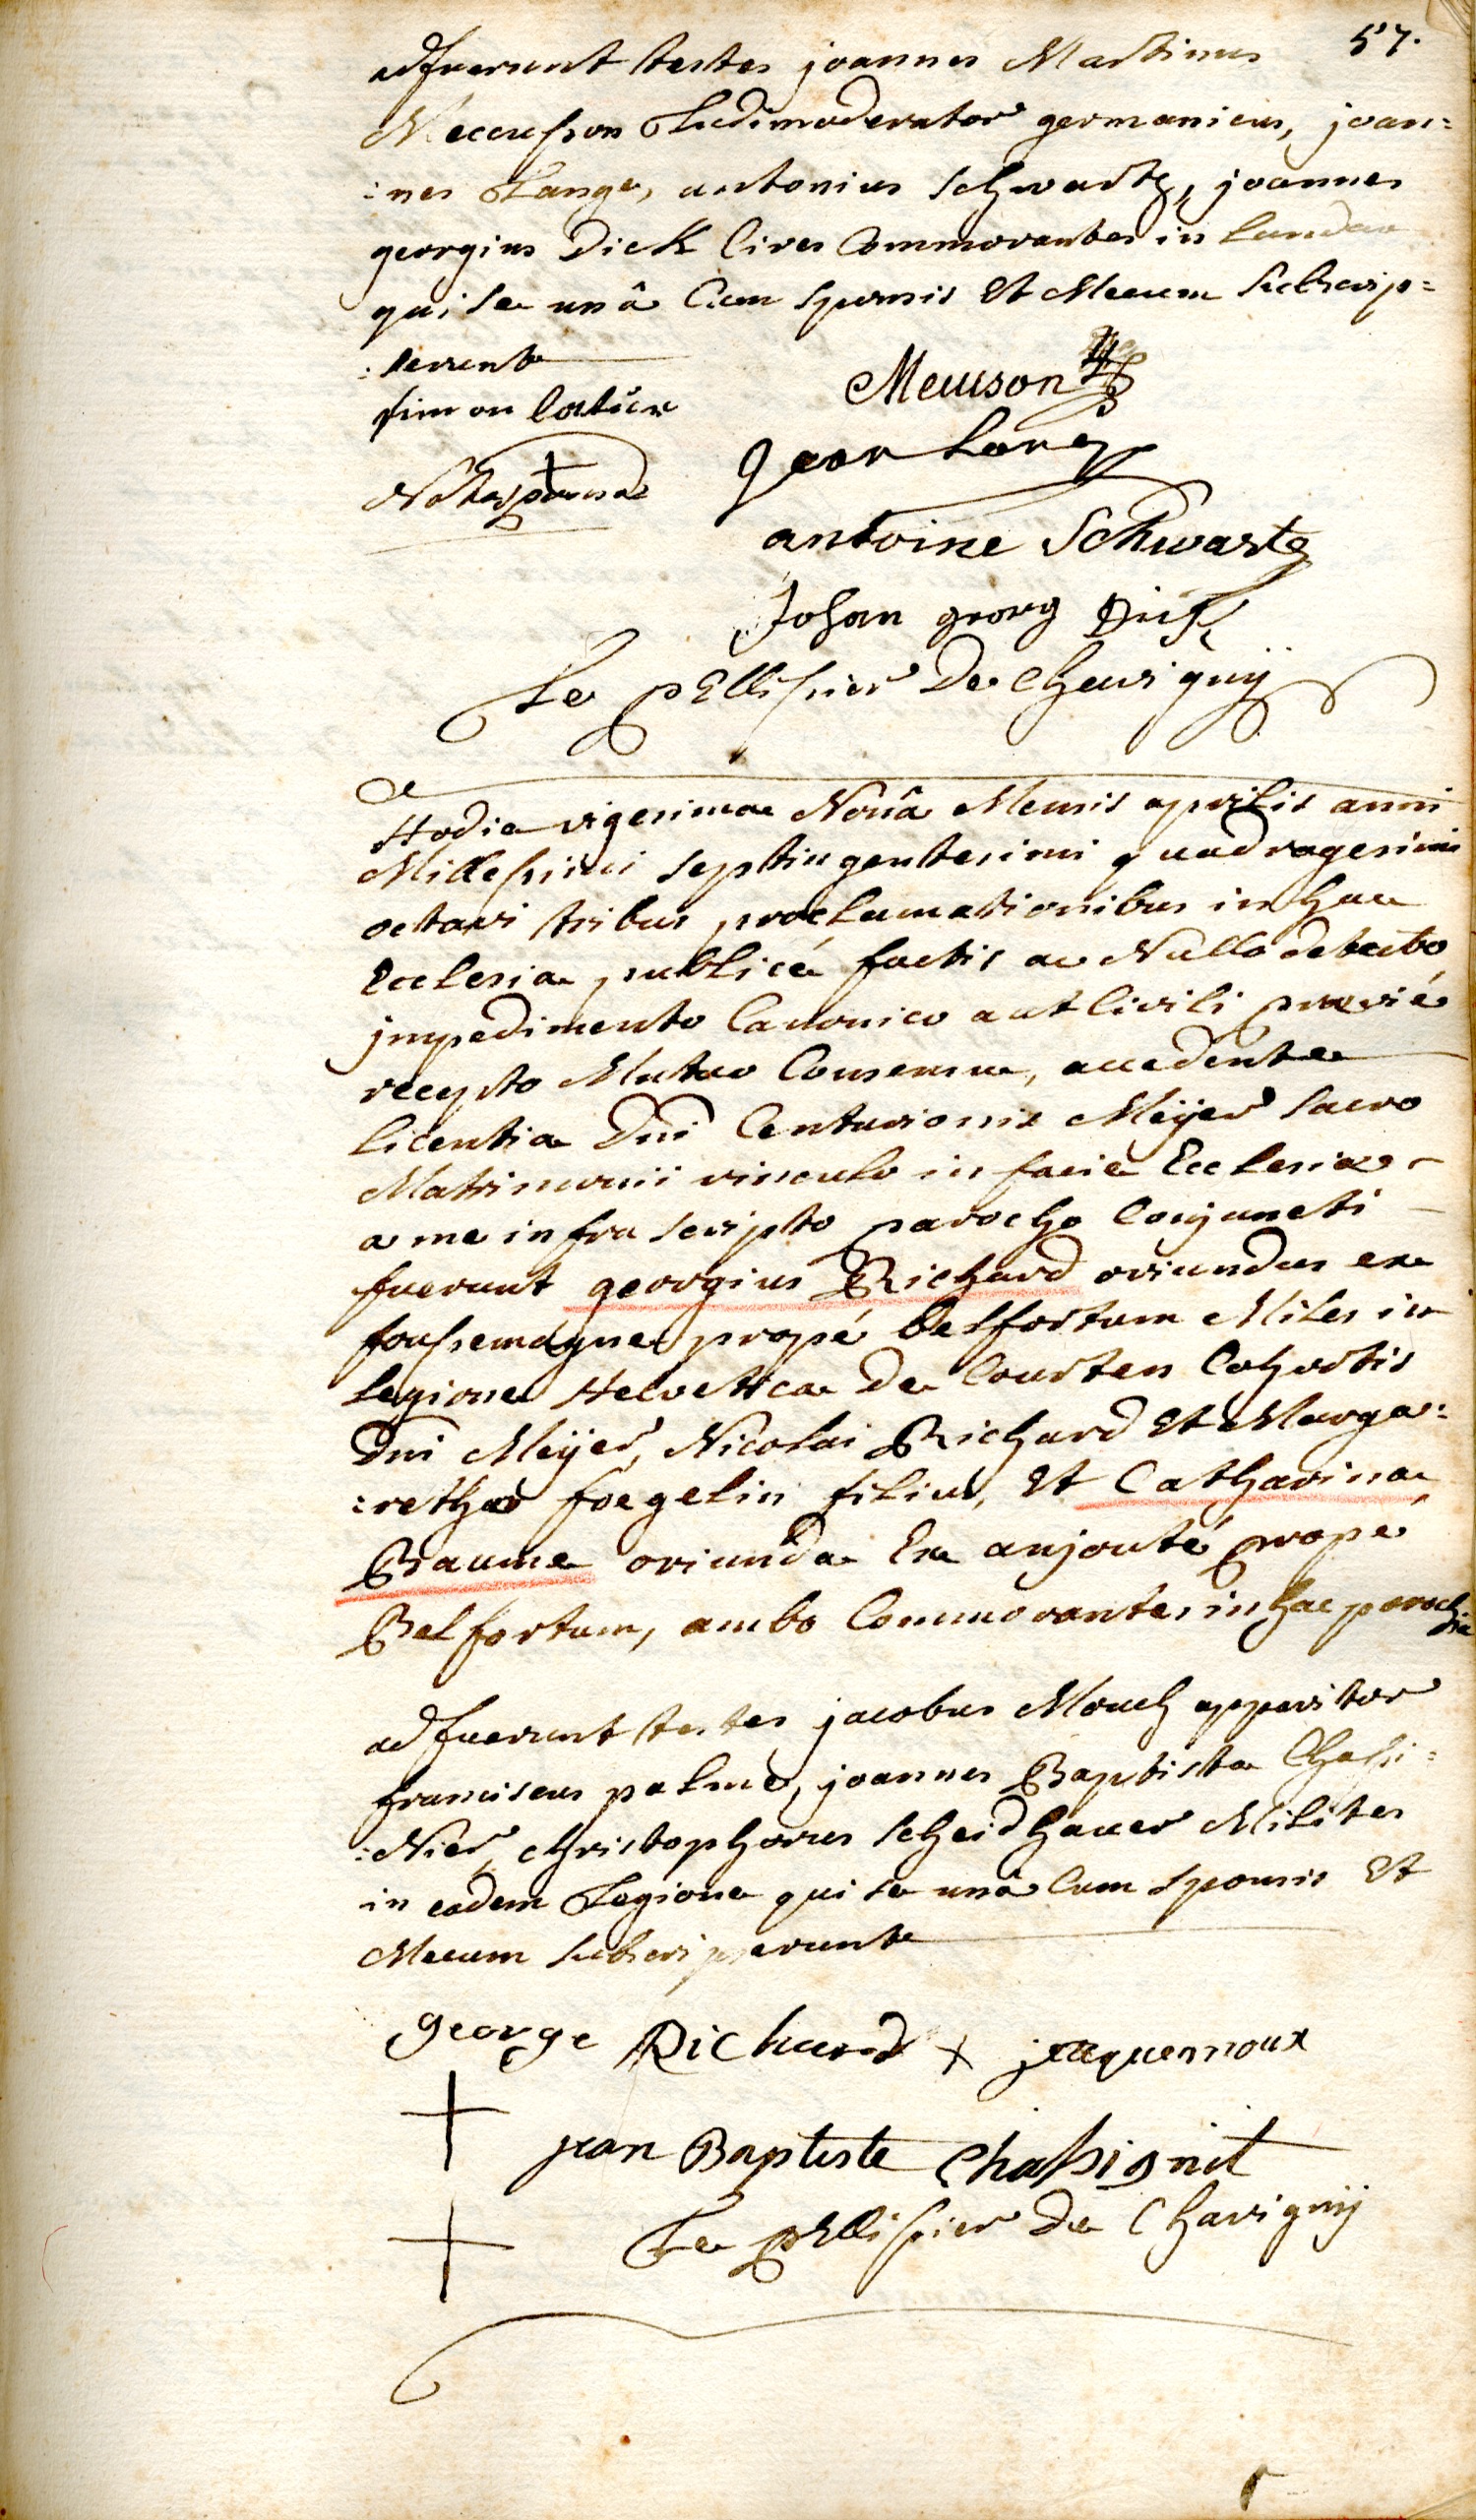 57.
adfuerunt testes joannes Martinus
Mecusson Ludimoderator germanicus, joan=
:nes Lange, antonius Schwartz, joannes
georgius Dick Cives Commorantes in Landau
qui se unâ Cum sponsis Et Mecum Subscrip=
:serunt
simon
Meusson
Jean Lang
antoine Schwartz
Johan georg Dick
Le pellissier De Chavignÿ
Hodie vigesima Nonâ Mensis aprilis anni
Millesimi septingentesimi quadragesimi
octavi tribus proclamationibus in hac
Ecclesia publicé factis ac Nullo detecto
jmpedimento Canonico aut Civili praevié
recepto Mutuo Consensu, accedente
licentia Dni Centurionis Meÿer Sacro
Matrimonii vinculo in facie Ecclesiae
a me infra scripto parocho Conjuncti
fuerunt georgius Richard oriundus ex
foussemagne propé belfortum Miles in
Legione Helvetica De Courten Cohortis
Dni Meÿer, Nicolai Richard Et Marga:
:rethae foegelin filius, Et Catharina
Braume oriunda Ex anjouté propé
Belfortum, ambo Commorantes in hac parochia
adfuerunt testes jacobus Mouch apparitor
franciscus palme, joannes Baptista Chassi=
:Nier, christophorus Scheidhauer Milites
in eadem Legione qui se unâ Cum sponsis Et
Mecum Subscripserunt
george Richard + jacquemoux
+
jean Baptiste Chassignit
+
Le pellissier De Chavignÿ